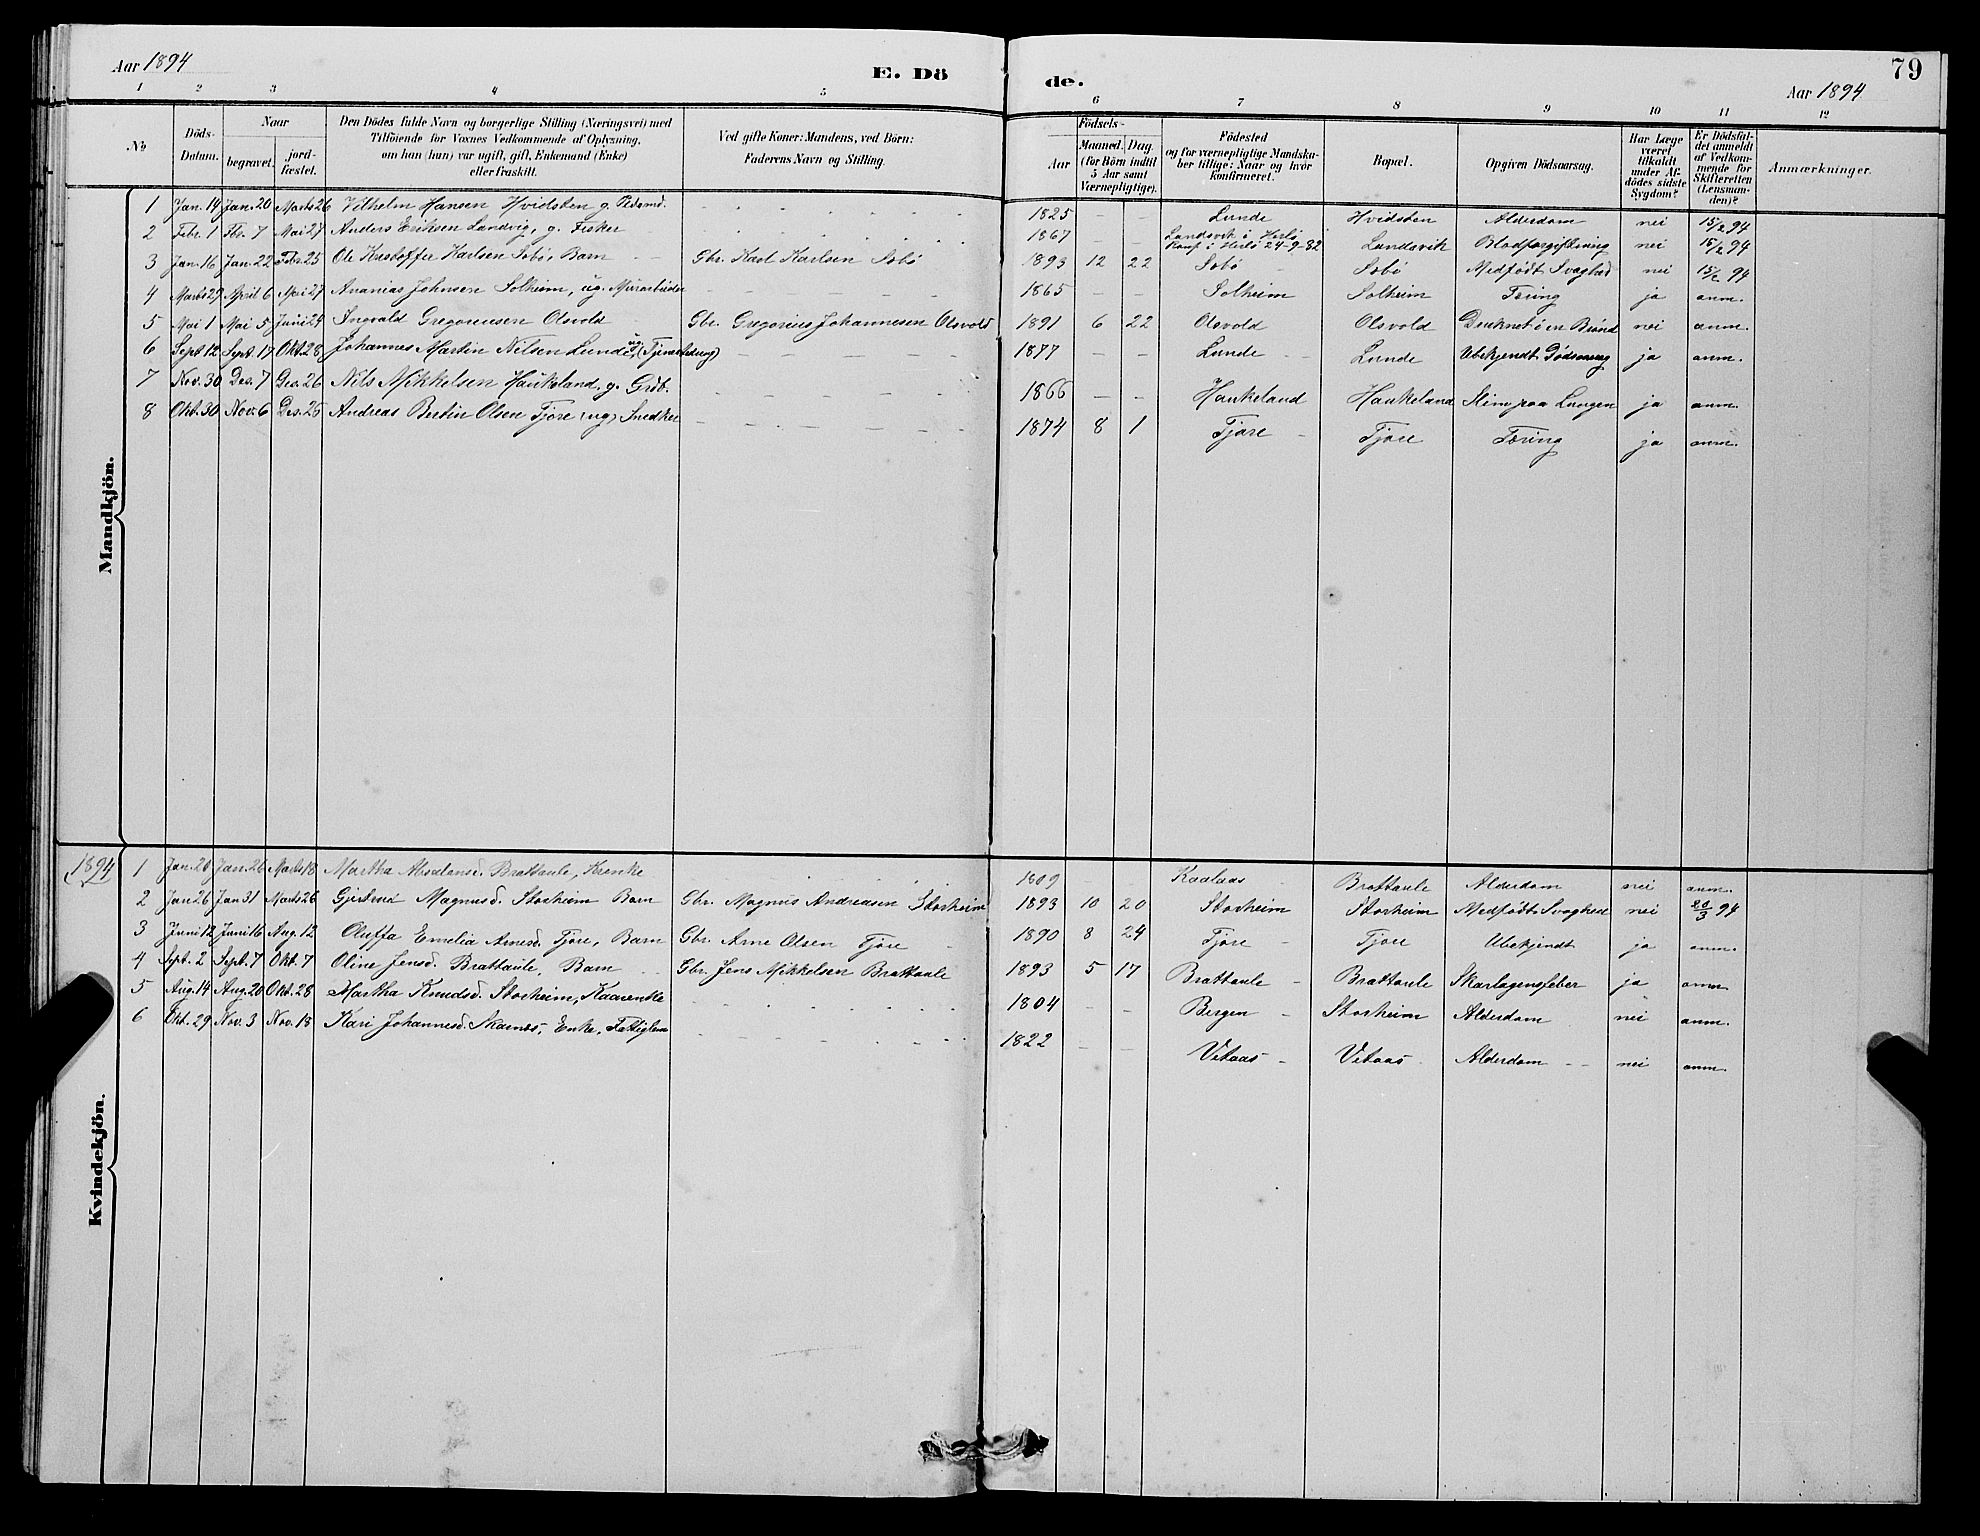 Aar 1894
E. Dö
de.
79
Aar 1894
1 2 3 4 5 6 7 8 9 10 11 12
№
Döds-
Datum.
Naar
begravet.
jord-
fæstet.
Den Dödes fulde Navn og borgerlige Stilling (Næringsvei) med
Tilföiende for Voxnes Vedkommende af Oplysning,
om han (hun) var ugift, gift, Enkemand (Enke)
eller fraskilt.
Ved gifte Koner: Mandens, ved Börn:
Faderens Navn og Stilling.
Födsels-
Aar
Maaned. Dag.
(for Börn indtil
5 Aar samt
Værnepligtige).
Födested
og for værnepligtige Mandska-
ber tillige: Naar og hvor
konfirmeret.
Bopæl.
Opgiven Dödsaarsag.
Har Læge
været
tilkaldt
under Af-
dödes sidste
Sygdom?
Er Dödsfal-
det anmeldt
af Vedkom-
mende for
Skifteretten
(Lensman-
den)?
Anmærkninger.
Mandkjön.
1 Jan. 14 Jan. 20 Marts 26 Vilhelm Hansen Hvidsten g. 1825 – – Lunde Hvidsten Alderdom nei 15/2 94
2 Febr. 1 Fbr. 7 Mai 27 Anders Eriksen Landvig, g. Fisker 1867 – – Landsvik i Herlö Konf. i Herlö 24-9-82 Landsvik Blodforgiftning nei 15/2 94
3 Jan. 16 Jan. 22 Febr. 25 Ole Kristoffer Karlsen Sobö, Barn Gbr. Karl Karlsen Sobö 1893 12 22 Sobö Sobö Medfödt Svaghed nei 15/2 94
4 Marts 29 April 6 Mai 27 Ananias Johnsen Solheim, ug. 1865 – – Solheim Solheim Tæring ja anm.
5 Mai 1 Mai 5 Juni 24 Ingvald Gregoriussen Olsvold Gbr. Gregorius Johannesen Olsvold 1891 6 22 Olsvold Olsvold Druknet i en Brönd nei anm.
6 Sept 12 Sept. 17 Okt. 28 Johannes Martin Nilsen Lunde, ug. 1877 – – Lunde Lunde Ubekjendt ja anm.
7 Nov. 30 Des. 7 Des. 26 Nils Mikkelsen Haukeland, g. Grdb. 1866 – – Haukeland Haukeland Slim paa Lungen ja anm.
8 Okt. 30 Nov. 6 Des. 25 Andreas Bertin Olsen Tjore (ug) Snedker 1874 8 1 Tjore Tjore Tæring ja anm.
Kvindekjön.
1894
1 Jan. 20 Jan. 26 Marts 18 Martha Absalonsd. Brattaule, 1809 – – Kaalaas Brattaule Alderdom nei anm.
2 Jan 26 Jan 31 Marts 26 Gjertrud Magnusd. Storheim Barn Gbr. Magnus Andreasen Storheim 1893 10 20 Storheim Storheim Medfödt Svaghed nei 20/3 94
3 Juni 12 Juni 16 Aug. 12 Oluffa Emelia Arnesd. Tjore, Barn Gbr. Arne Olsen Tjore 1890 8 24 Tjore Tjore Ubekjendt ja anm.
4 Sept. 2 Sept. 7 Okt. 7 Oline Jensd. Brattaule, Barn Gbr. Jens Mikkelsen Brattaule 1893 5 17 Brattaule Brattaule Skarlagensfeber ja anm
5 Aug. 14 Aug. 20 Okt. 28 Martha Knudsd. Storheim, Kaarenke 1804 – – Bergen Storheim Alderdom nei anm.
6 Okt. 29 Nov. 3 Nov. 18 Kari Johannesd. Skarnes, Enke, Fattiglem 1822 – – Vetaas Vetaas Alderdom nei anm.